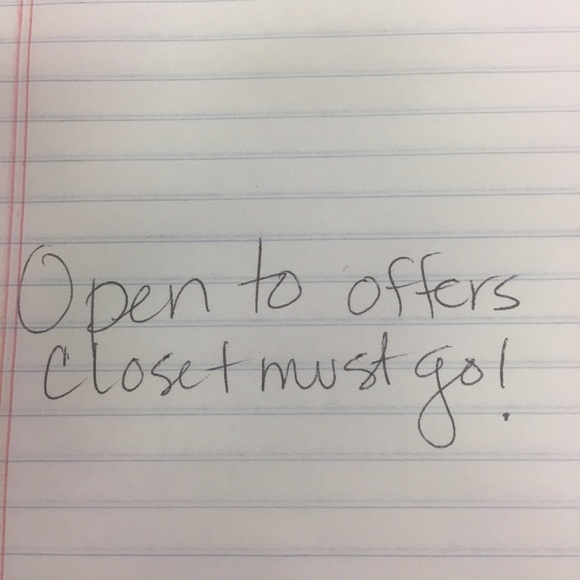 Open to offers
closet must go!